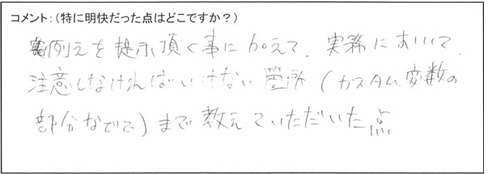 コメント:(特に明快だった点はどこですか?)
実例えを提示頂く事に加えて、実務において、
注意しなければいけない箇所(カスタム変数の
部分などで)まで教えていただいた点